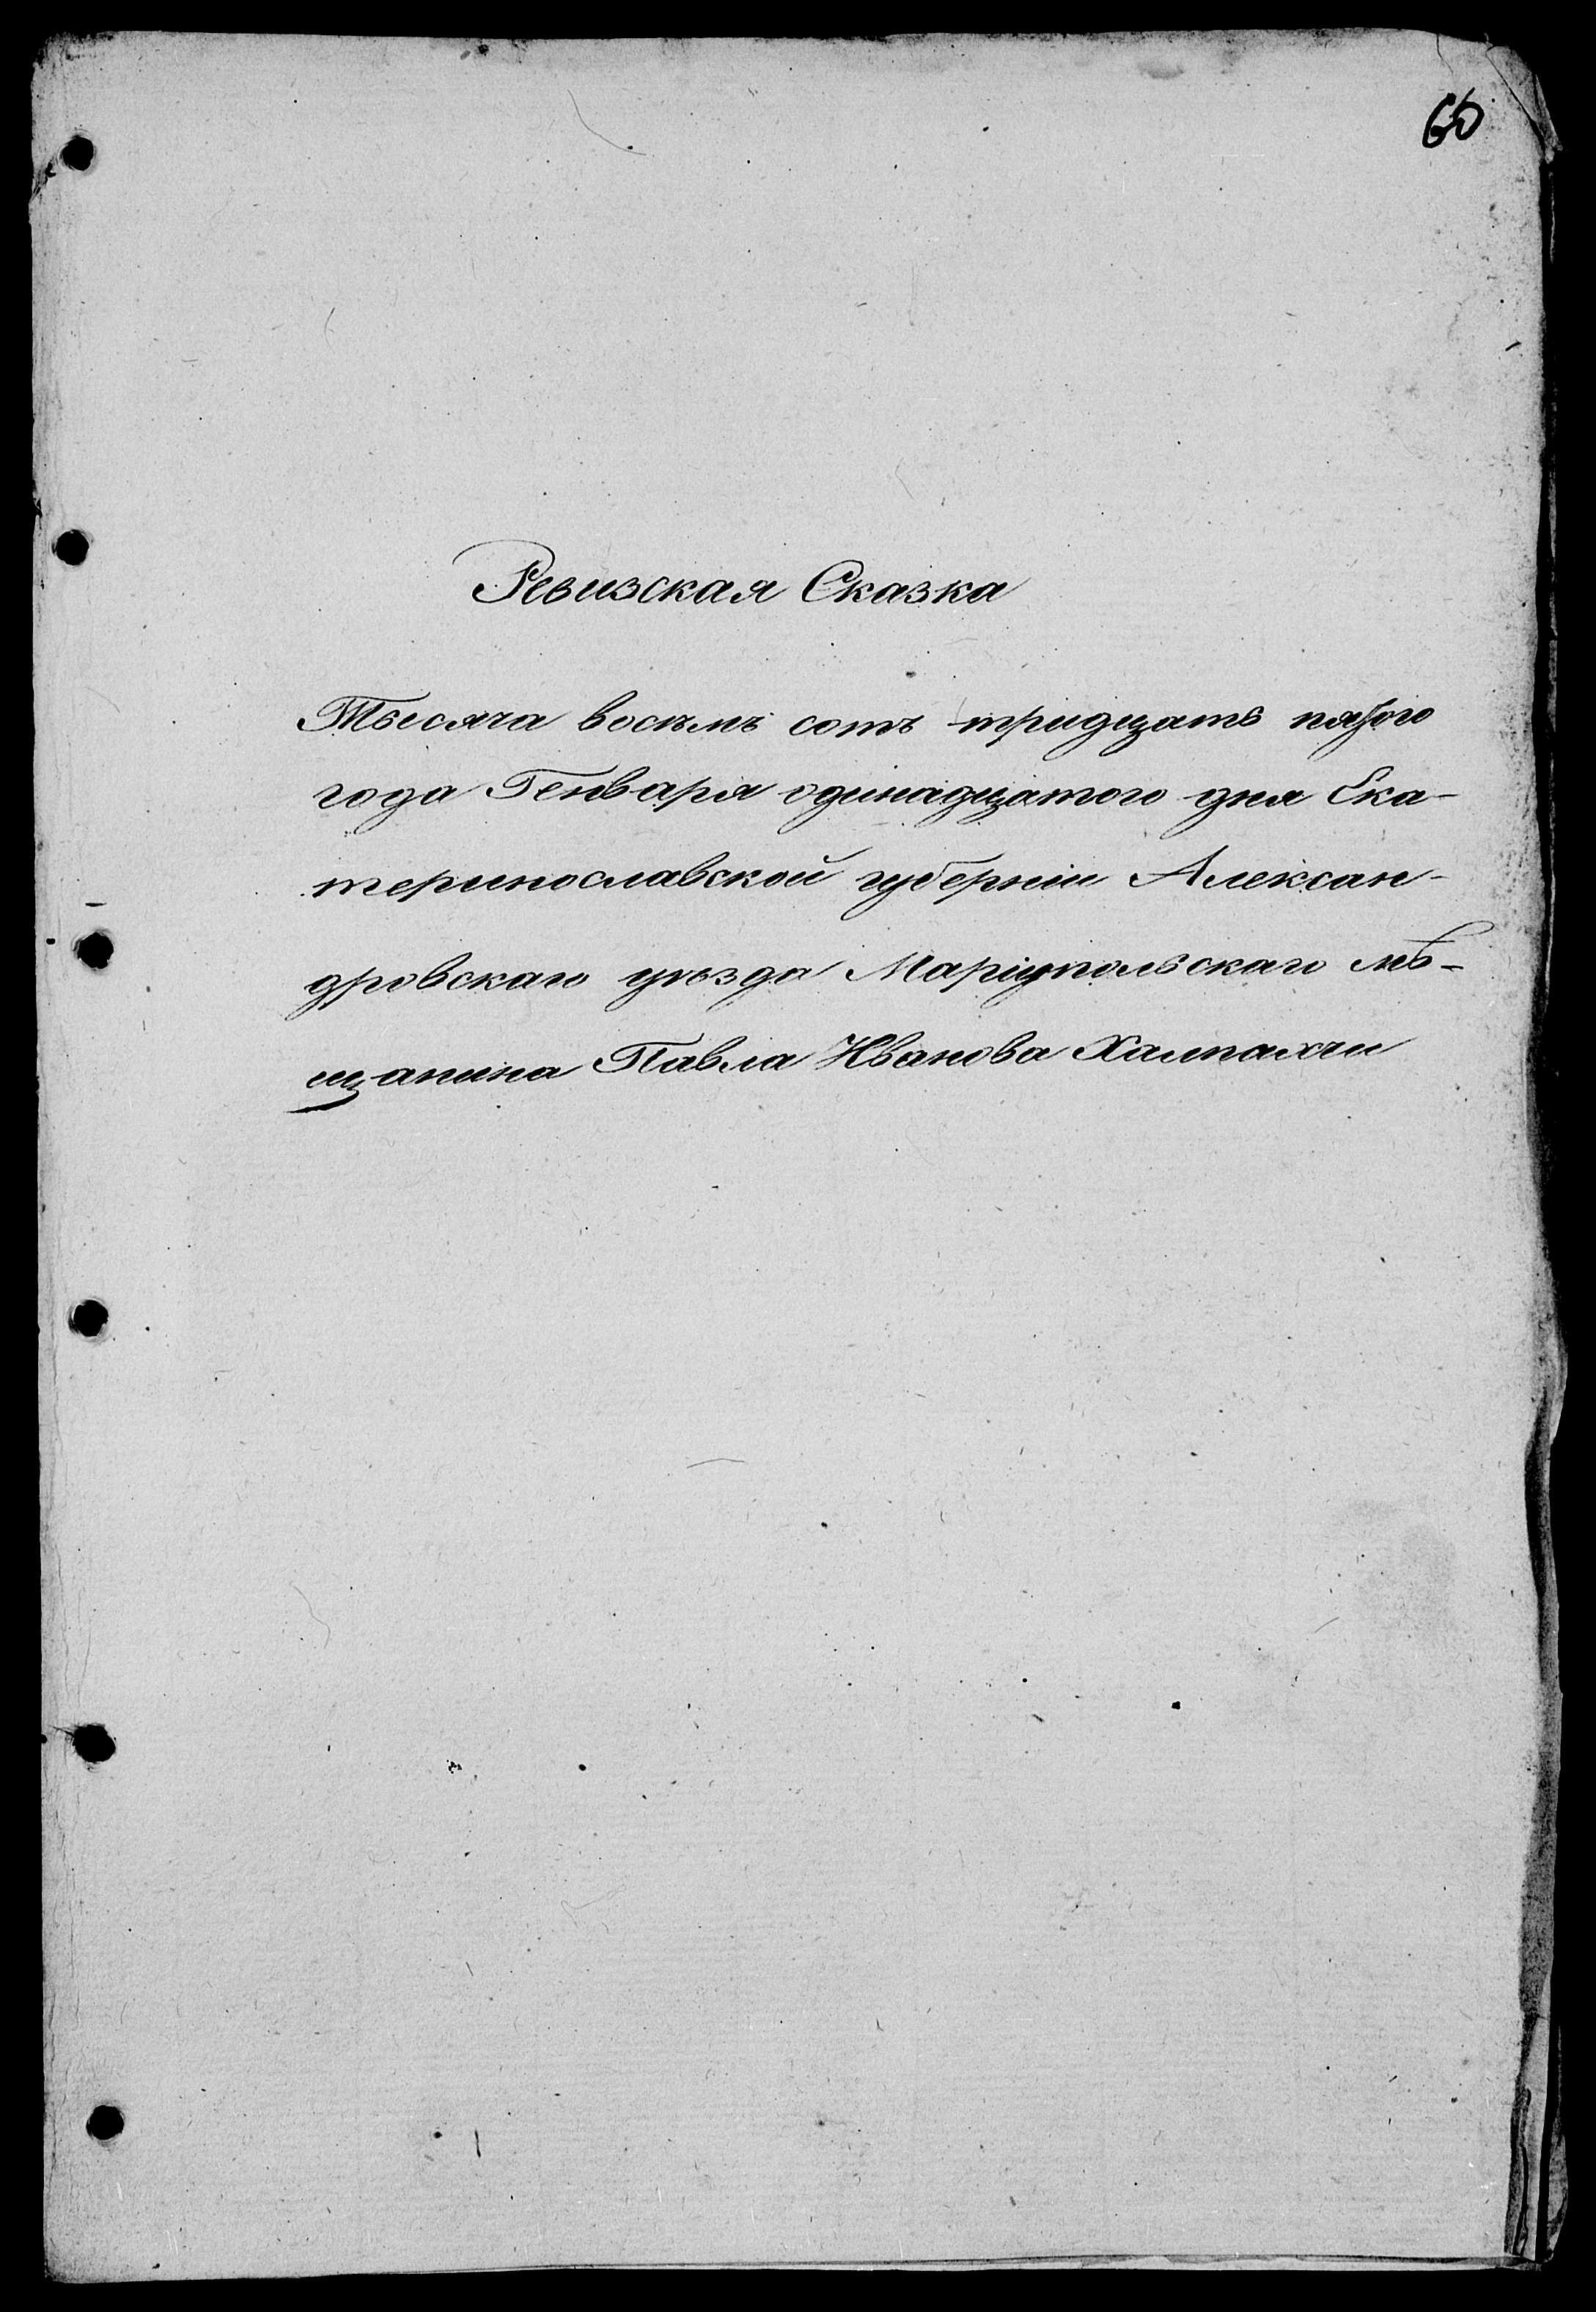 65
Ревизская Сказка
Тысяча восемь сотъ тридцать пятого
года Генваря одинадцатого дня Ека-
теринославской губерніи Алексан-
дровскаго уѣзда Маріупольскаго мѣ-
щанина Павла Иванова Халпахчи